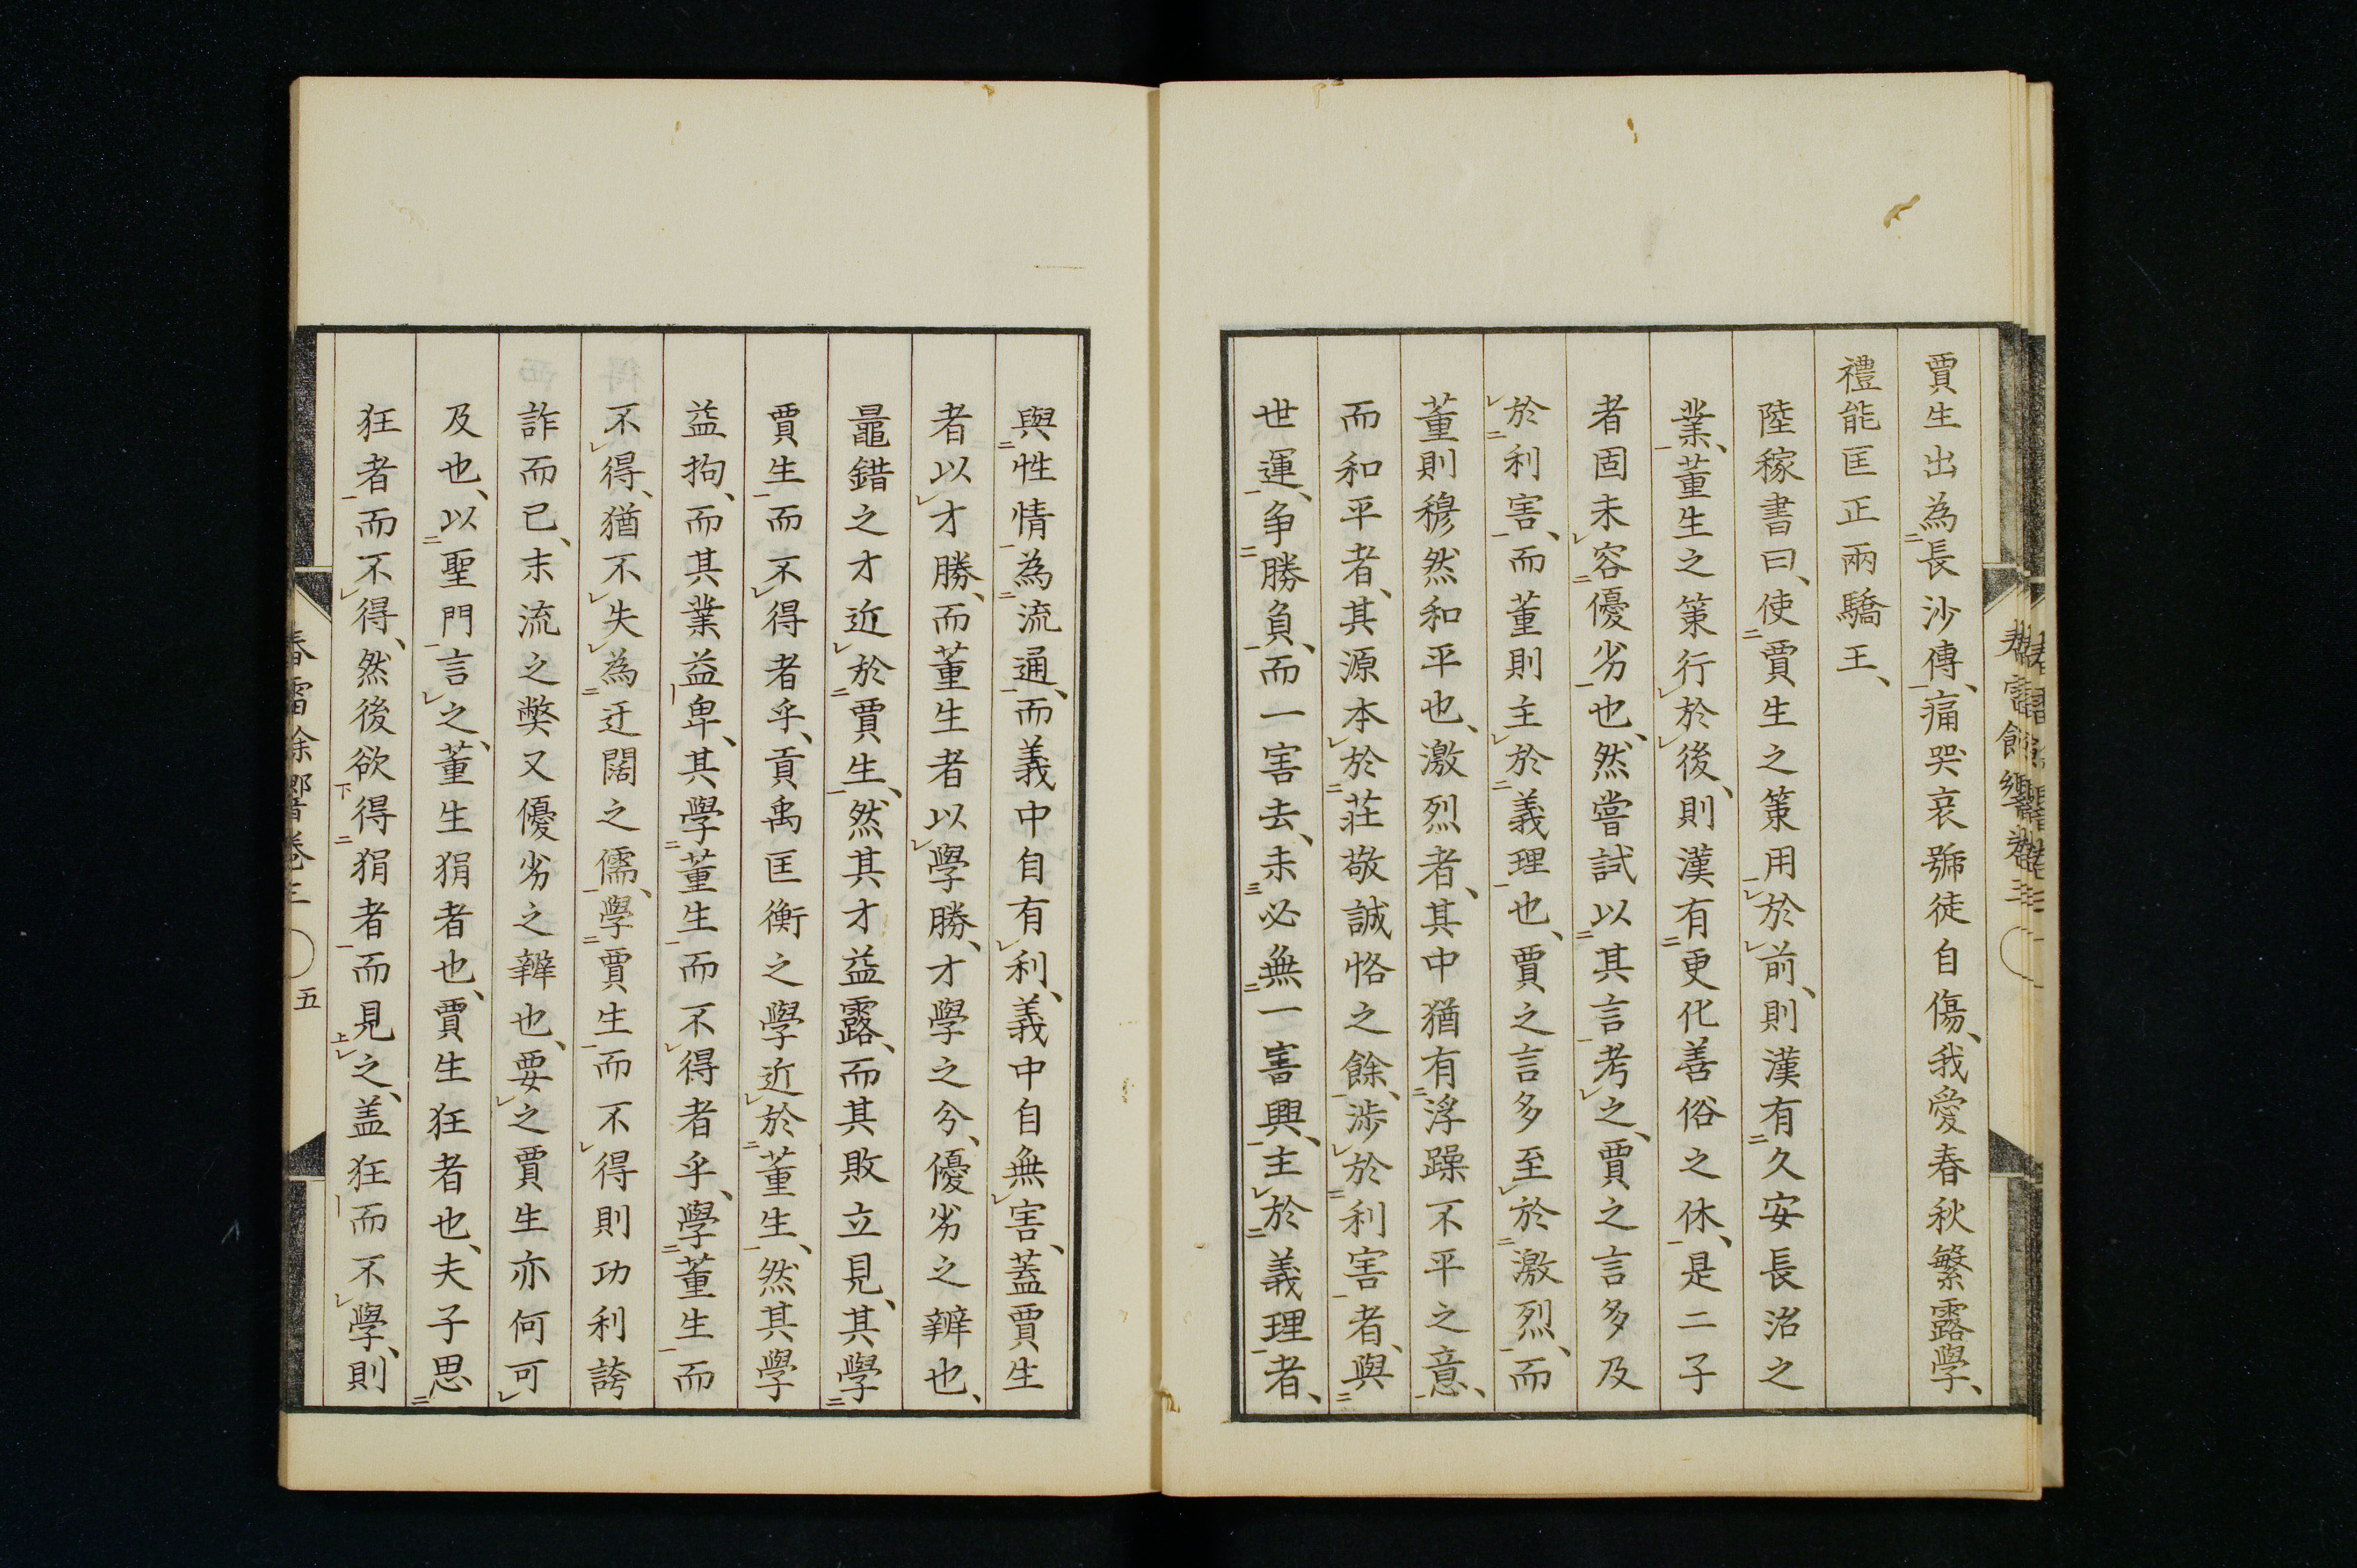 賈生出為長沙傳、痛哭哀號徒自傷、我愛春秋繁露學、
禮能匡正兩驕王、
陸稼書曰、使賈生之策用於前、則漢有久安長治之
業、董生之策行於後、則漢有更化善俗之休、是二子
者固未容優劣也、然嘗試以其言考之、賈之言多及
於利害、而董則主於義理也、賈之言多至於激烈、而
董則穆然和平也、激烈者、其中猶有浮躁不平之意、
而和平者、其源本於莊敬誠恪之餘、涉於利害者、與
世運、争勝負、而一害去、未必無一害興、主於義理者、
與性情為流通、而義中自有利、義中自無害、蓋賈生
者以才勝、而董生者以學勝、才學之分、優劣之辨也、
鼂錯之才近於賈生、然其才益露、而其敗立見、其學
賈生而不得者乎、貢禹匡衡之學近於董生、然其學
益拘、而其業益卑、其學董生而不得者乎、學董生而
不得、猶不失為迂闊之儒、學賈生而不得則功利誇
詐而已、末流之弊又優劣之辨也、要之賈生亦何可
及也、以聖門言之、董生狷者也、賈生狂者也、夫子思
狂者而不得、然後欲得狷者而見之、盖狂而不學、則
五